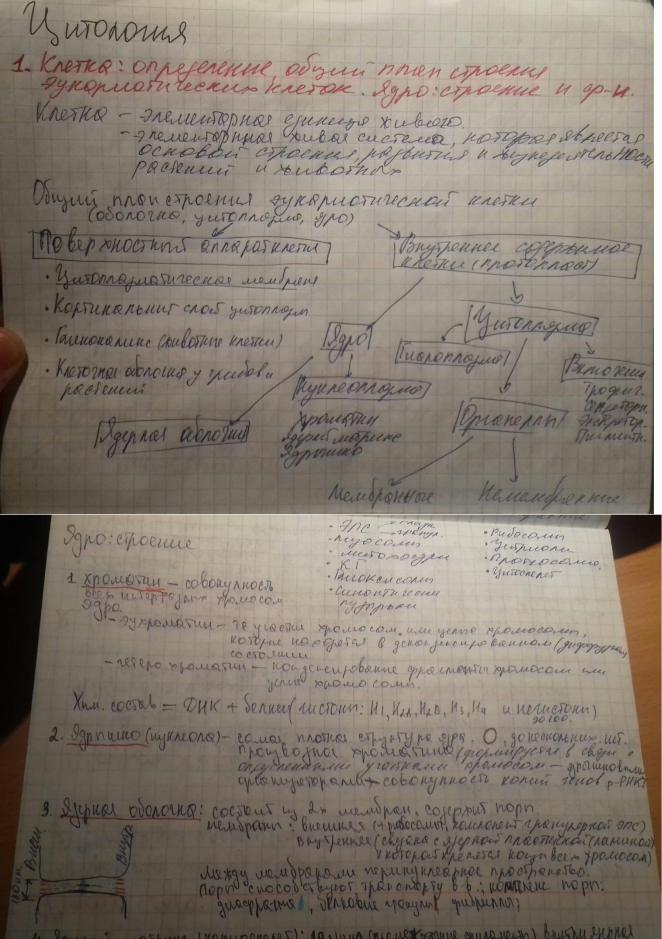 Цитология
1. Клетка: определение, общий план строения
эукариотических клеток. Ядро: строение и ф-и.
Клетка – элементарная единица живого.
– элементарная живая система, которая является
основой строения, развития и жизнедеятельности
растений и животных
Общий план строения эукариотической клетки
(оболочка, цитоплазма, ядро)
Поверхностный аппарат клетки
Внутреннее содержимое
клетки (протопласт)
• Цитоплазматическая мембрана
• Кортикальный слой цитоплазм
• Гликокаликс (животные клетки)
• Клеточная оболочка у грибов и
растений
Ядро
Цитоплазма
Гиалоплазма
Включения
Трофич.
Секреторн.
Экскретор.
Пигментн.
Нуклеоплазма
Хроматин
Ядерн. матрикс
Ядрышко
Ядерная оболочка
Органеллы
Мембранные
Немембранные
• ЭПС гладк.
гранул.
• Лизосомы
• Митохондрии
• КГ
• Глиоксисомы
• Синаптически
пузырьки
• Рибосомы
• Центриоли
• Протеосомы
• Цитоскелет
Ядро: строение
1. Хроматин – совокупность
всех интерфазных хромосом
ядра
– эухроматин – те участки хромосом или целые хромосомы,
которые находятся в деконденсированном (диффузном)
состоянии
– гетерохроматин – конденсирование фрагменты хромосом или
целые хромосомы.
Хим. состав = ДНК + белки (гистоны: H1, H2A, H2B, H3, H4 и негистоны)
2. Ядрышко (нуклеола) – самая плотная структура ядра. О, до нескольких шт.
Производное хроматина (формируется в связи с
определенными участками хромосом – ядрышковыми
организаторами – совокупность копий генов р-РНК)
3. Ядерная оболочка: состоит из 2х мембран, содержит поры
мембраны: внешняя (+рибосомы, компонент гранулярной ЭПС)
внутренняя (связана с ядерной пластинкой (ламиной)
к которой крепятся концы всех хромосом)
Между мембранами перинуклеарное пространство.
Поры способствуют транспорту в-в; комплекс поры:
диафрагма, белковые гранулы, фибриллы;